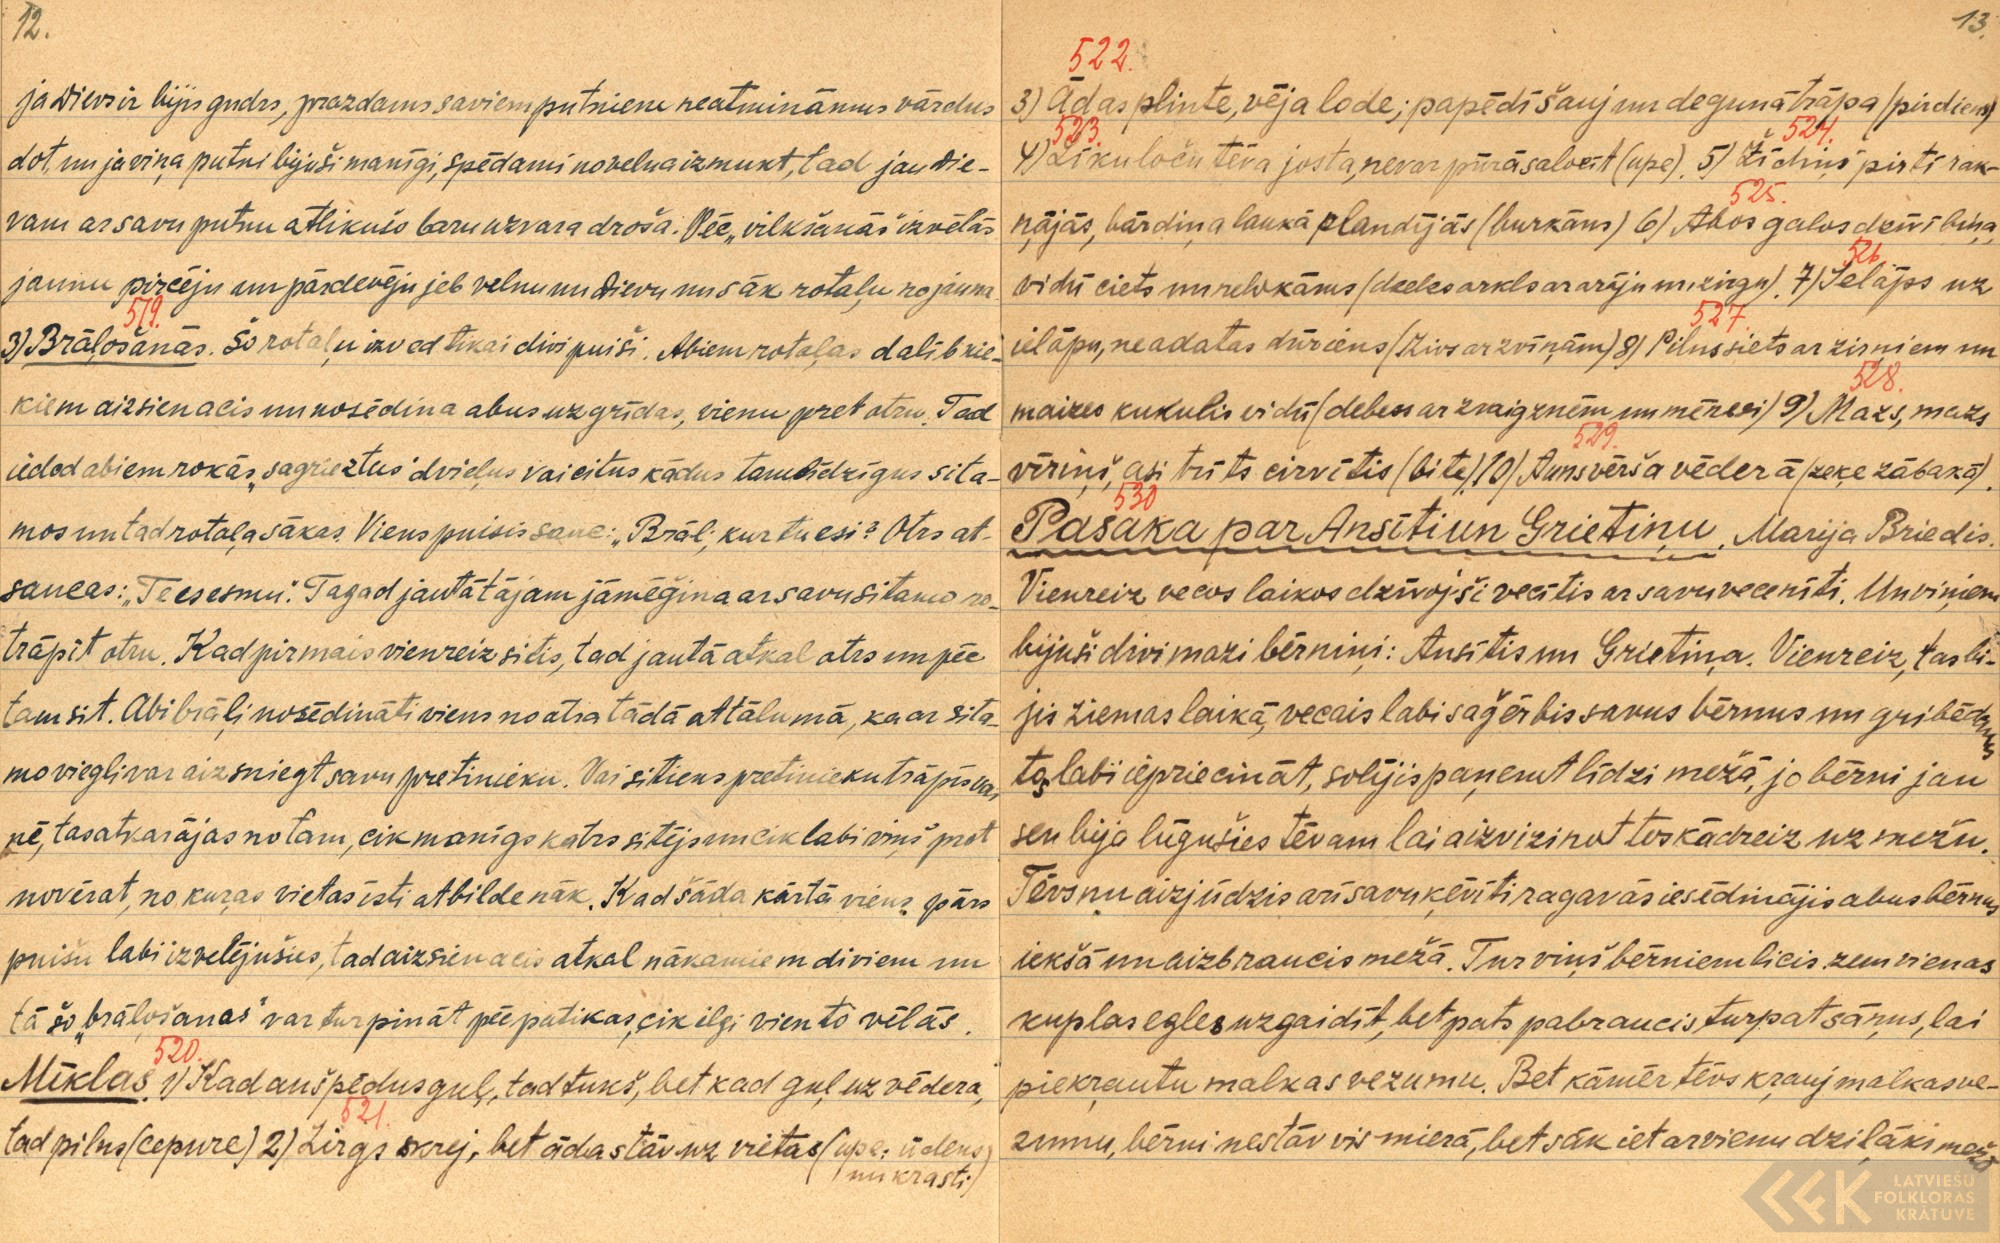 12.
ja Dievs ir bijis gudrs, prazdams saviem putniem neatmināmus vārdus
dot, un ja viņa putni bijuši manīgi, spēdami no velna izmukt, tad jau Die-
vam ar savu putnu atlikušo baru uzvara droša. Pēc „vilkšanās" izvēlās
jaunu pircēju un pārdevēju jeb velnu un Dievu un sāk rotaļu no jauna.
519.
3) Brāļošanās. Šo rotaļu izved tikai divi puiši. Abiem rotaļas dalībnie-
kiem aizsien acis un nosēdina abus uz grīdas, vienu pret otru. Tad
iedod abiem rokās „sagrieztus" dvieļus vai citus kādus tamlīdzīgus sita-
mos un tad rotaļa sākas. Viens puisis sauc: „Brāli, kur tu esi?" Otrs at-
saucas: „Te es esmu". Tagad jautātājam jāmēģina ar savu sitamo no-
trāpīt otru. Kad pirmais vienreiz sitis, tad jautā atkal otrs un pēc
tam sit. Abi brāļi nosēdināti viens no otra tādā attālumā, ka ar sita-
mo viegli var aizsniegt savu pretinieku. Vai sitiens pretinieku trāpīs vai
nē, tas atkarājas no tam, cik manīgs katrs sitējs un cik labi viņš prot
novērat, no kuŗas vietas īsti atbilde nāk. Kad šāda kārtā viens pārs
puišu labi izvelējušies, tad aizsien acis atkal nākamiem diviem un
tā šo „brāļošanos" var turpināt pēc patikas, cik ilgi vien to vēlās.
520.
Mīklas. 1) Kad auš pēdus guļ, tad tukš, bet kad guļ uz vēdera,
521.
tad pilns (cepure) 2) Zirgs skrej, bet āda stāv uz vietas (upe: ūdens
un krasti)
13.
522.
3) Ādas plinte, vēja lode; papēdī šauj un degunā trāpa (pirdiens)
523. 524.
4) Līku loču tēva josta, nevar pūrā salocīt (upe). 5) Židiņš pirtī rak-
525.
ņājās, bārdiņa laukā plandījās (burkāns) 6) Abos galos dzīvībiņa,
526.
vidū ciets un nelokāms (arkls ar arāju un zirgu). 7) Ielāps uz
527.
ielāpu, ne adatas dūriens (Zivs ar zvīņām) 8) Pilns siets ar zirņiem un
528.
maizes kukulis vidū (debess ar zvaigznēm un mēnesi) 9) Mazs, mazs
529.
vīriņš, asi trīts cirvītis (bite) 10) Auns vērša vēderā (zeķe zābakā).
530
Pasaka par Ansīti un Grietiņu. Marija Briedis.
Vienreiz vecos laikos dzīvojši vecītis ar savu vecenīti. Un viņiem
bijuši divi mazi bērniņi: Ansītis un Grietiņa. Vienreiz, tas bi-
jis ziemas laikā, vecais labi saģērbis savus bērnus un gribēdams
tos labi iepriecināt, solījis paņemt līdzi mežā, jo bērni jau
sen bija lūgušies tēvam lai aizvizinot tos kādreiz uz mežu.
Tēvs nu aizjūdzis arī savu ķēvīti ragavās iesēdinājis abus bērnus
iekšā un aizbraucis mežā. Tur viņš bērniem licis zem vienas
kuplas egles uzgaidīt, bet pats pabraucis turpat sāņus, lai
piekŗautu malkas vezumu. Bet kāmēr tēvs kŗauj malkas ve-
zumu, bērni nestāv vis mierā, bet sāk iet arvienu dziļāki mežā
LATVIEŠU
FOLKLORAS
KRĀTUVE